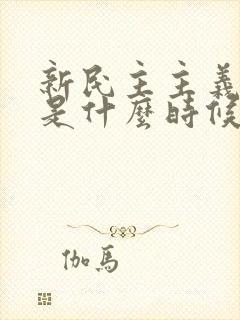 新民主主義
是什麼時候
伽馬